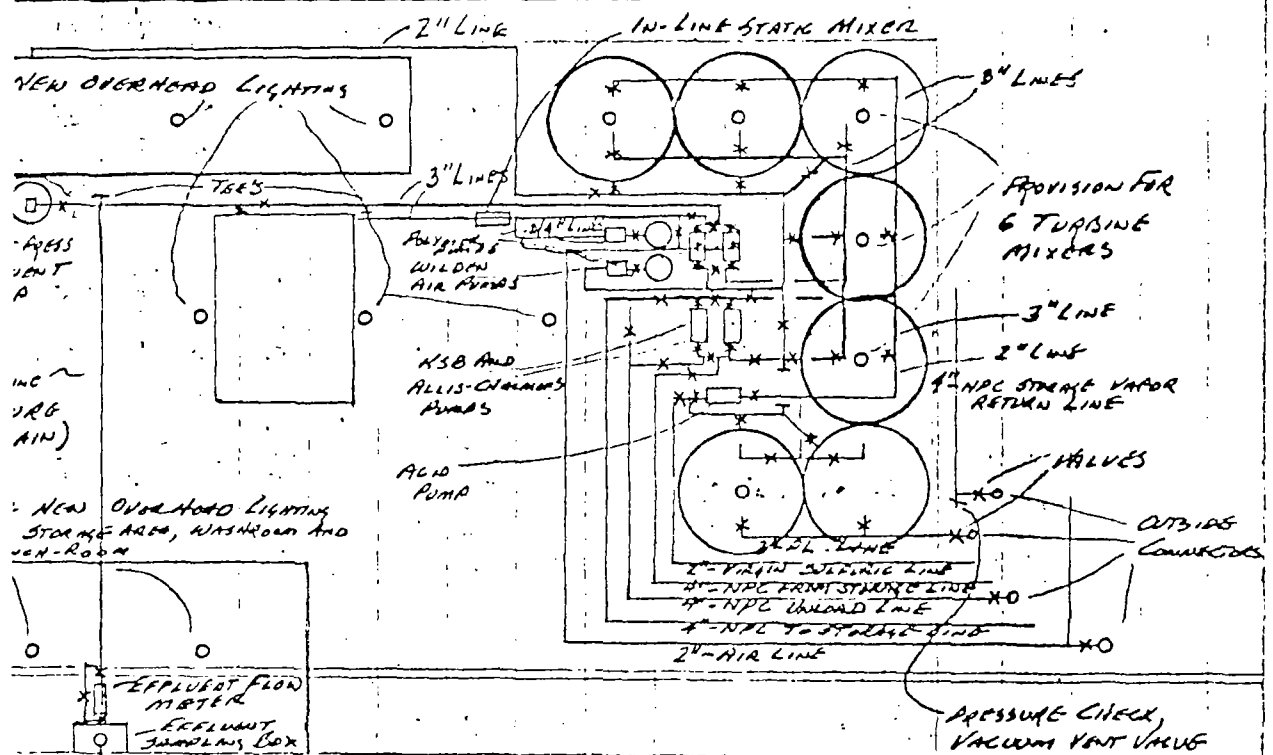 2" LINE
IN-LINE STATIC MIXER
NEW OVERHEAD LIGHTING
3" LINES
TEE'S
3" LINES
3/4" LINE
PROVISION FOR
6 TURBINE
MIXERS
WILDEN
AIR PUMPS
3" LINE
2" LINE
KSB AND
ALLIS-CHALMERS
PUMPS
4"-NPC STORAGE VAPOR
RETURN LINE
ACID
PUMP
VALVES
NEW OVERHEAD LIGHTING
STORAGE AREA, WASHROOM AND
OUTSIDE
CONNECTORS
LINE
2"-VIRGIN SULFURIC LINE
4"-NPC FROM STORAGE LINE
4"-NPC UNLOAD LINE
4"-NPC TO STORAGE LINE
2"-AIR LINE
EFFLUENT FLOW
METER
EFFLUENT
SAMPLING BOX
PRESSURE CHECK,
VACUUM VENT VALVE